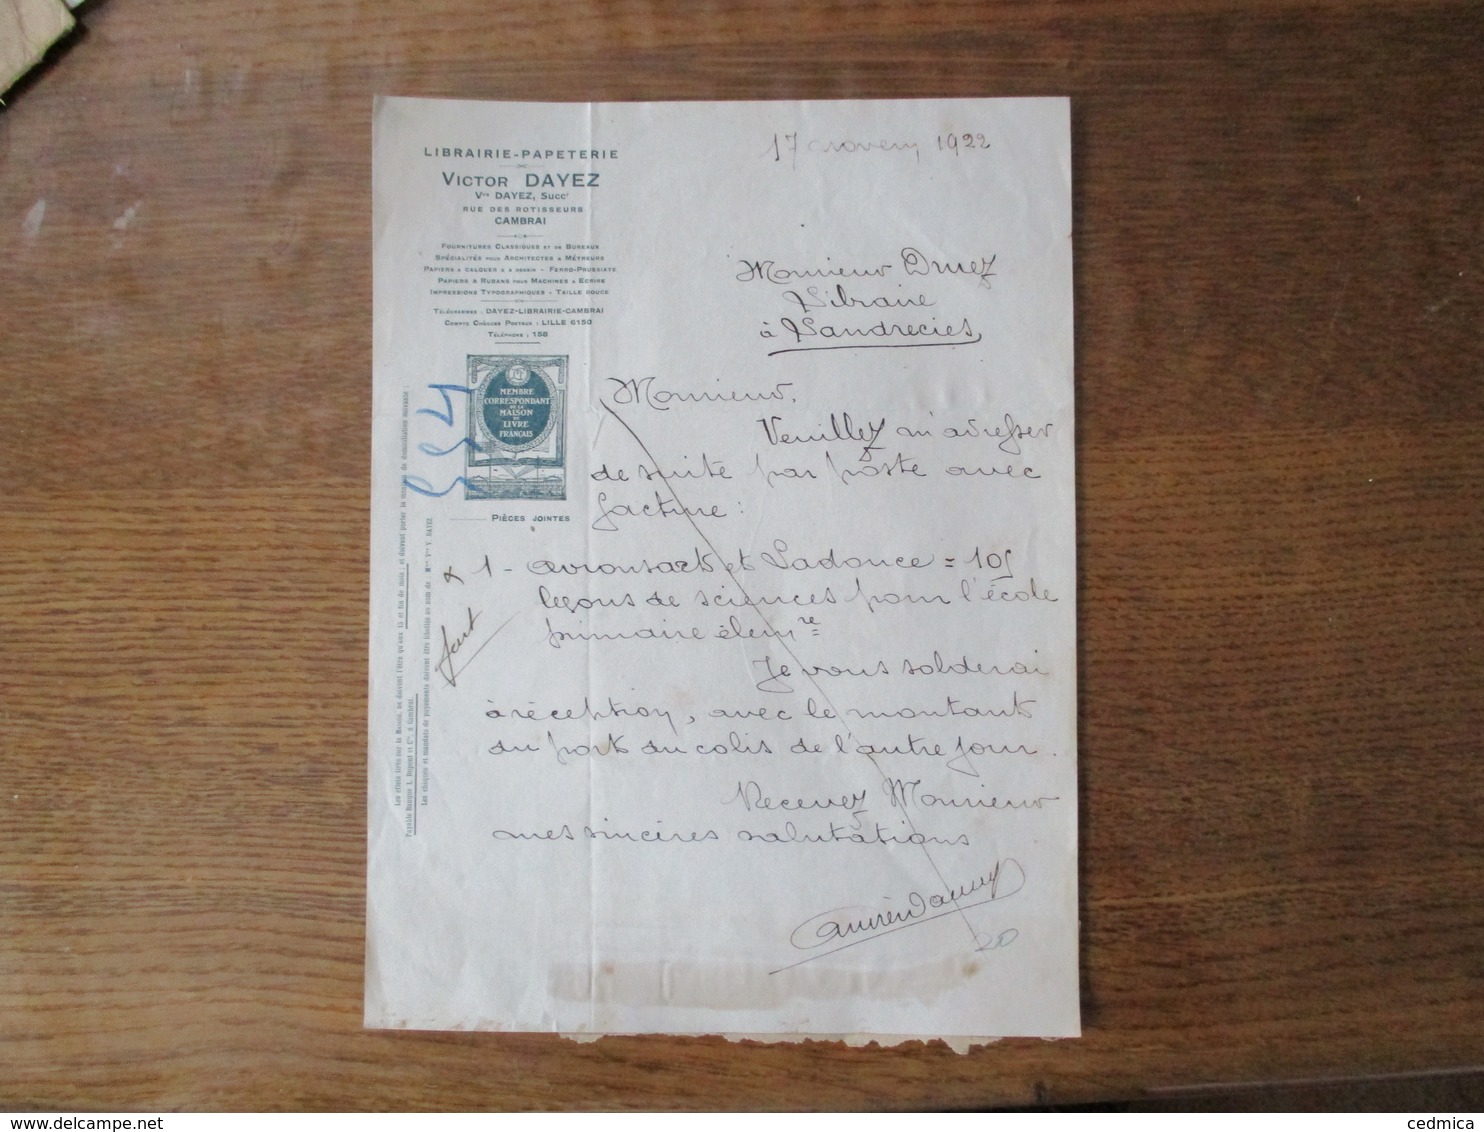 LIBRAIRIE-PAPETERIE
VICTOR DAYEZ
Vve DAYEZ, Succr
RUE DES ROTISSEURS
CAMBRAI
FOURNITURES CLASSIQUES ET DE BUREAUX
SPÉCIALITÉS POUR ARCHITECTES & MÉTREURS
PAPIERS A CALQUER & A DESSIN - FERRO-PRUSSIATE
PAPIERS & RUBANS POUR MACHINES A ECRIRE
IMPRESSIONS TYPOGRAPHIQUES - TAILLE DOUCE
TÉLÉGRAMMES : DAYEZ-LIBRAIRIE-CAMBRAI
COMPTE CHÈQUES POSTAUX : LILLE 6150
TÉLÉPHONE : 158
MEMBRE
CORRESPONDANT
DE LA
MAISON
DU
LIVRE
FRANÇAIS
PIÈCES JOINTES
Les effets tirés sur la Maison, ne doivent l'être qu'aux 15 et fin de mois ; et doivent porter la mention de domiciliation suivante :
Payable Banque L. Dupont et Cie, à Cambrai.
Les chèques et mandats de payements doivent être libellés au nom de Mme Vve V. DAYEZ.
17 1922
Monsieur Druez
Libraire
à Landrecies
Monsieur,
Veuillez m'adresser
de suite par poste avec
facture :
x 1 - et = 10f
leçons de sciences pour l'école
primaire élemre
Je vous solderai
à réception, avec le montant
du port du colis de l'autre jour.
Recevez Monsieur
mes sincères salutations
20
cedmica